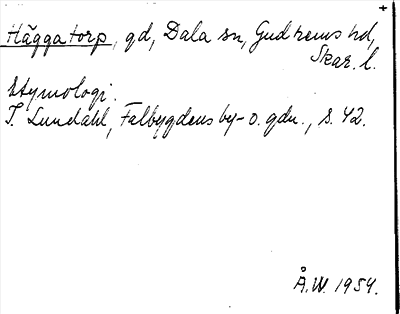 +
Häggatorp, gd, Dala sn, Gudhems hd,
Skar. l.
Etymologi.
I. Lundahl, Falbygdens by- o. gdn., s. 42.
Å.W. 1954.